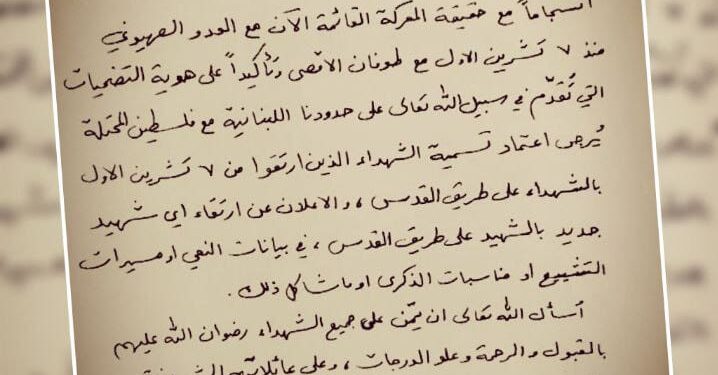 انسجاماً مع حقيقة المعركة القائمة الآن مع العدو الصهيوني
منذ ٧ تشرين الاول مع طوفان الاقصى وتأكيداً على هوية التضحيات
التي تُقدّم في سبيل الله تعالى على حدودنا اللبنانية مع فلسطين المحتلة
يُرجى اعتماد تسمية الشهداء الذين ارتقوا من ٧ تشرين الاول
بالشهداء على طريق القدس ، والاعلان عن ارتقاء اي شهيد
جديد بالشهيد على طريق القدس ، في بيانات النعي او مسيرات
التشييع او مناسبات الذكرى او ما شاكل ذلك .
أسأل الله تعالى ان يمّن على جميع الشهداء رضوان الله عليهم
بالقبول والرحمة وعلو الدرجات ، وعلى عائلات